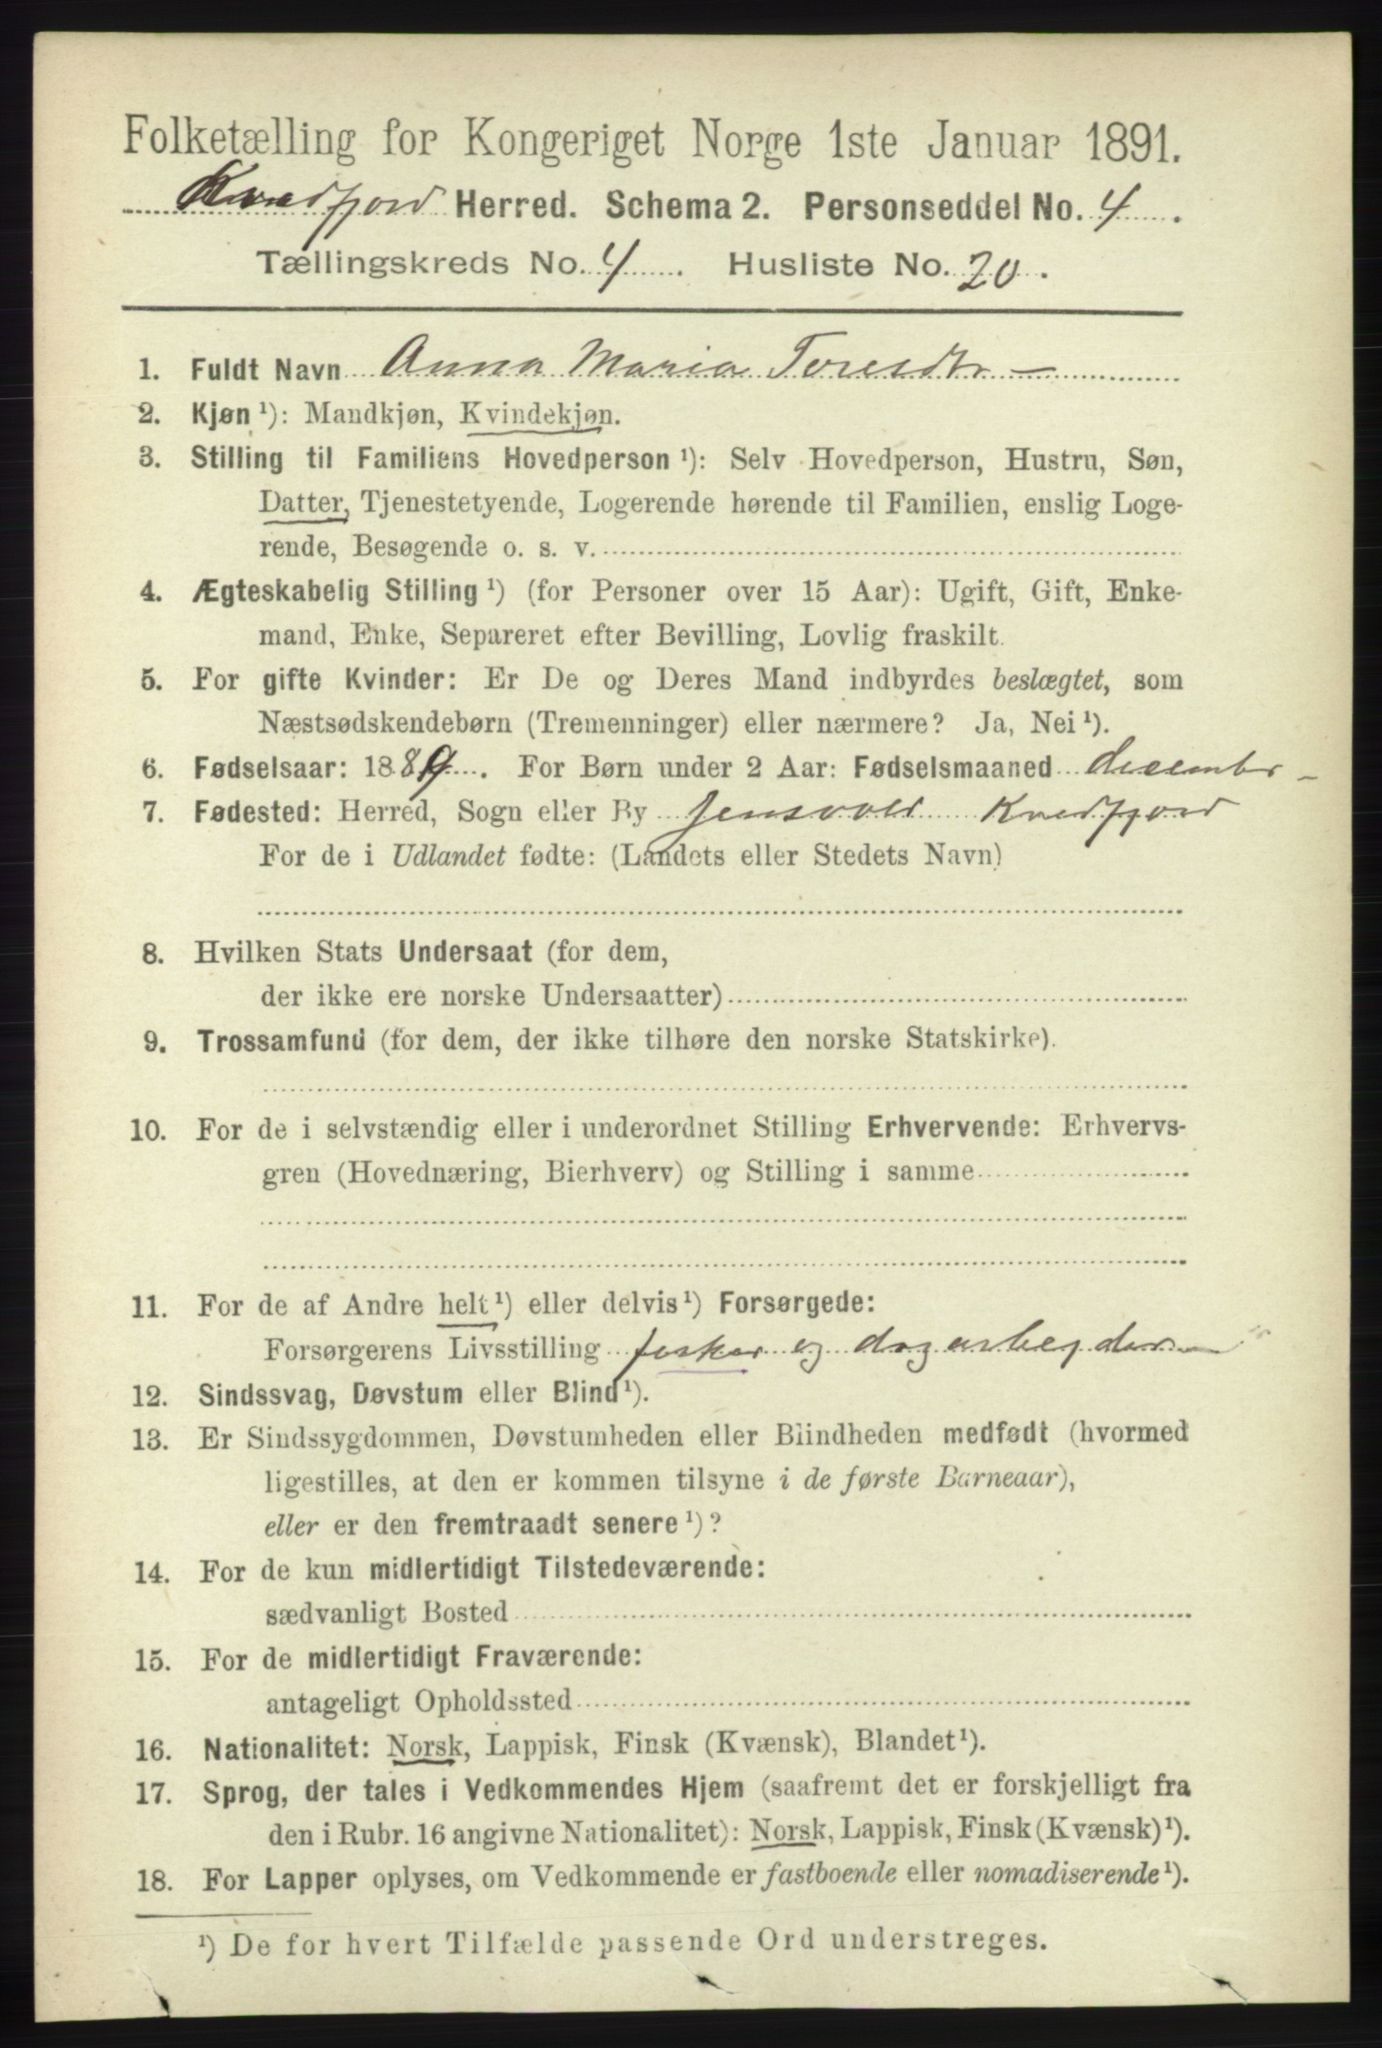 Folketælling for Kongeriget Norge 1ste Januar 1891.
Kvedfjord Herred. Schema 2. Personseddel No. 4.
Tællingskreds No. 4. Husliste No. 20.
1. Fuldt Navn Anna Maria Toresdtr
2. Kjøn ¹): Mandkjøn, Kvindekjøn.
3. Stilling til Familiens Hovedperson ¹): Selv Hovedperson, Hustru, Søn,
Datter, Tjenestetyende, Logerende hørende til Familien, enslig Loge-
rende, Besøgende o. s. v.
4. Ægteskabelig Stilling ¹) (for Personer over 15 Aar): Ugift, Gift, Enke-
mand, Enke, Separeret efter Bevilling, Lovlig fraskilt.
5. For gifte Kvinder: Er De og Deres Mand indbyrdes beslægtet, som
Næstsødskendebørn (Tremenninger) eller nærmere? Ja, Nei ¹).
6. Fødselsaar: 1889. For Børn under 2 Aar: Fødselsmaaned decembr
7. Fødested: Herred, Sogn eller By Jensvold Kvedfjord
For de i Udlandet fødte: (Landets eller Stedets Navn)
8. Hvilken Stats Undersaat (for dem,
der ikke ere norske Undersaatter)
9. Trossamfund (for dem, der ikke tilhøre den norske Statskirke).
10. For de i selvstændig eller i underordnet Stilling Erhvervende: Erhvervs-
gren (Hovednæring, Bierhverv) og Stilling i samme
11. For de af Andre helt ¹) eller delvis ¹) Forsørgede:
Forsørgerens Livsstilling fisker og dagarbeyder
12. Sindssvag, Døvstum eller Blind ¹).
13. Er Sindssygdommen, Døvstumheden eller Blindheden medfødt (hvormed
ligestilles, at den er kommen tilsyne i de første Barneaar),
eller er den fremtraadt senere ¹)?
14. For de kun midlertidigt Tilstedeværende:
sædvanligt Bosted
15. For de midlertidigt Fraværende:
antageligt Opholdssted
16. Nationalitet: Norsk, Lappisk, Finsk (Kvænsk), Blandet ¹).
17. Sprog, der tales i Vedkommendes Hjem (saafremt det er forskjelligt fra
den i Rubr. 16 angivne Nationalitet): Norsk, Lappisk, Finsk (Kvænsk) ¹).
18. For Lapper oplyses, om Vedkommende er fastboende eller nomadiserende ¹).
¹) De for hvert Tilfælde passende Ord understreges.